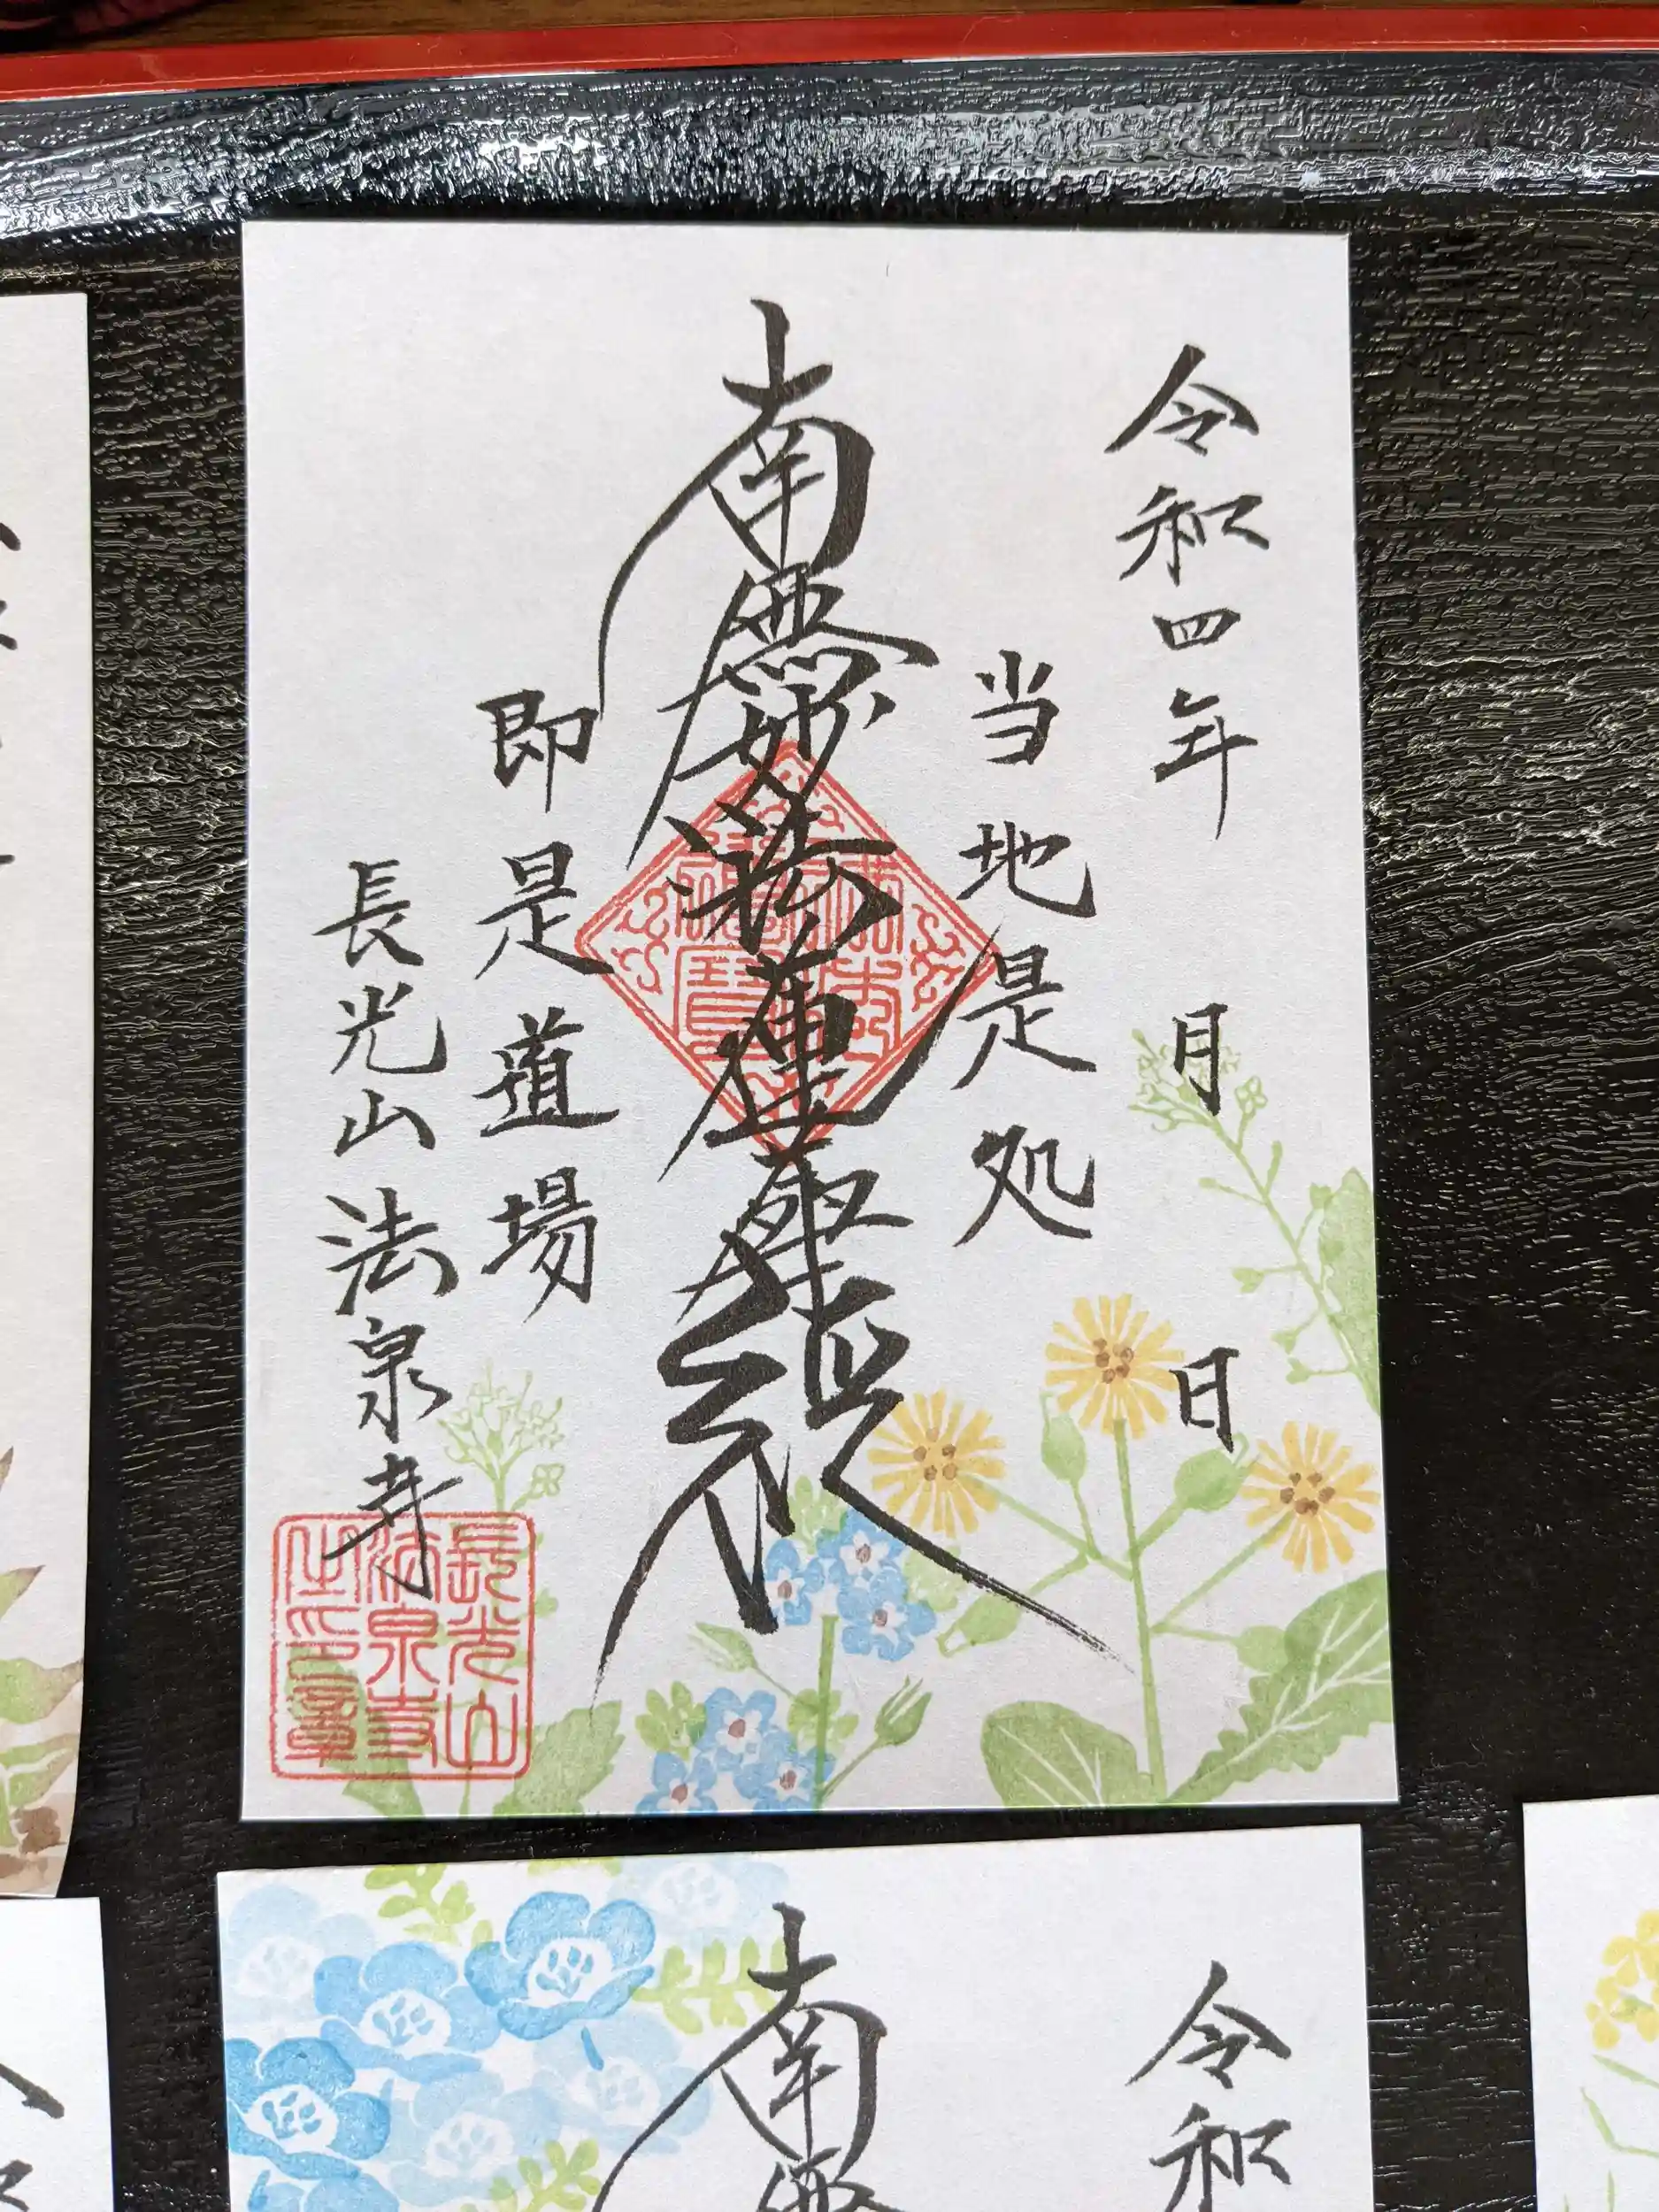 令和四年 月 日
当地是処
南無妙法蓮華経
即是道場
長光山法泉寺
長光山
法泉寺
之印章
南無
令和